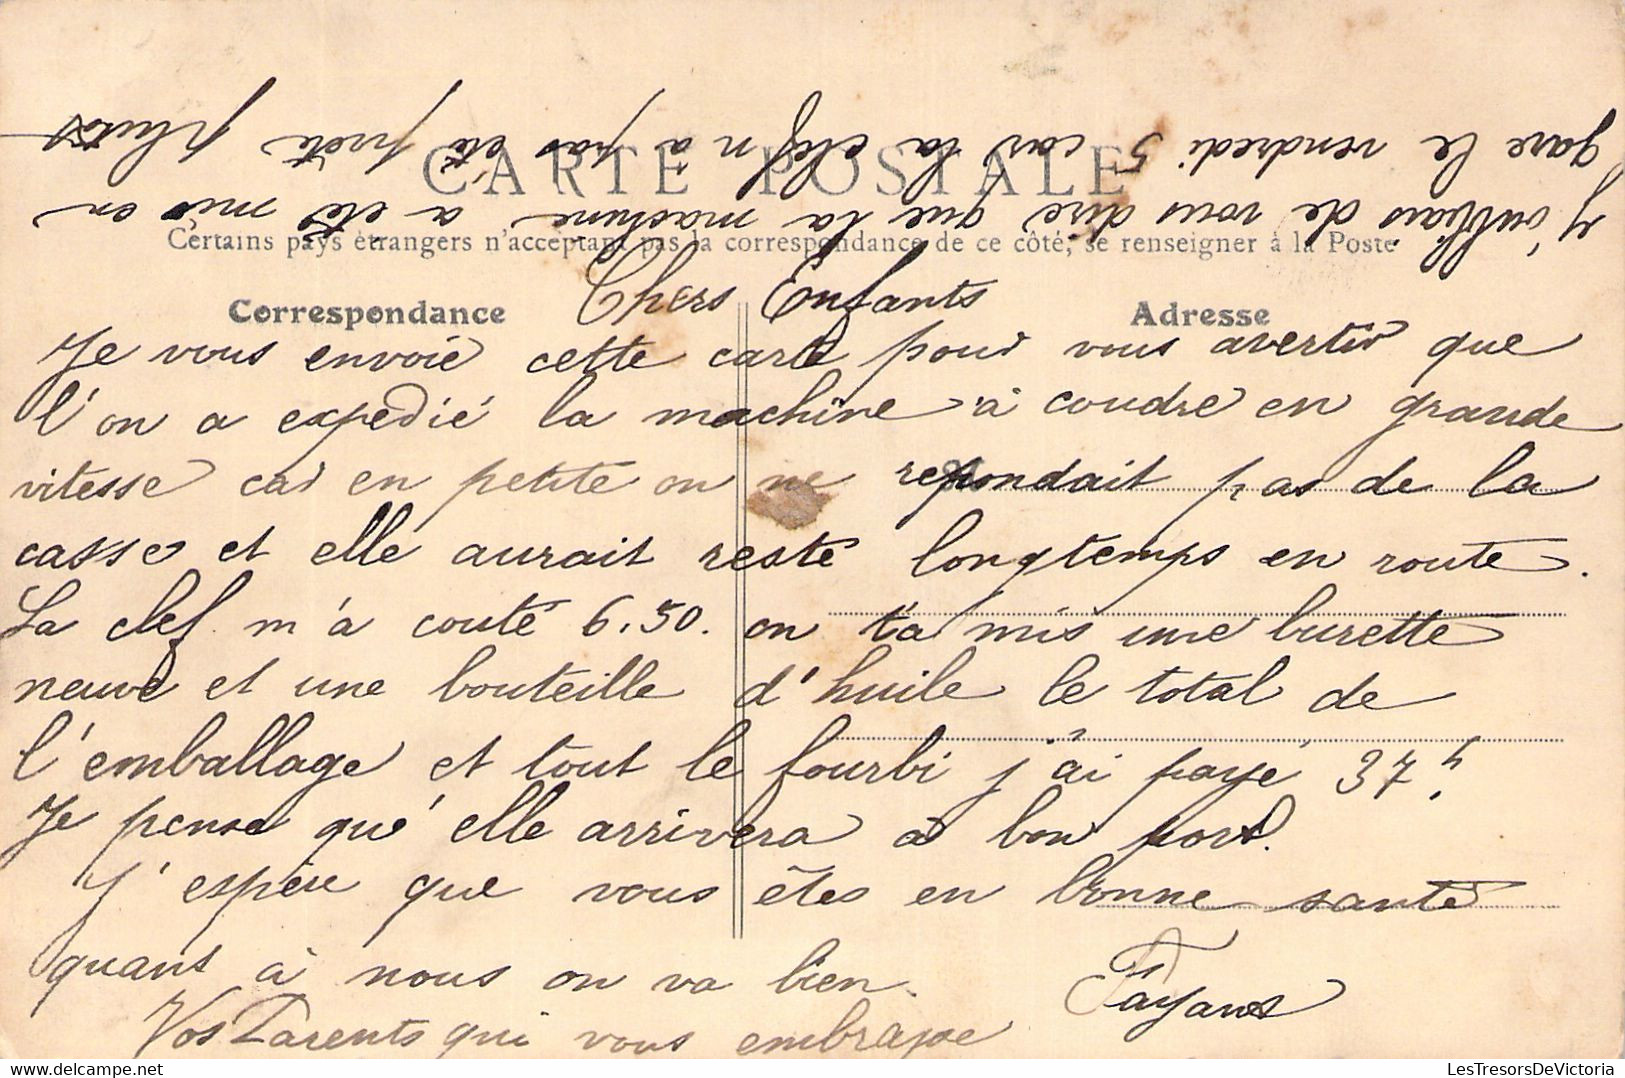 CARTE POSTALE
Certains pays étrangers n'acceptant pas la correspondance de ce côté, se renseigner à la Poste
Correspondance
Adresse
Chers Enfants
Je vous envoie cette carte pour vous avertir que
l'on a expedié la machine à coudre en grande
vitesse car en petite on ne repondait pas de la
casse et elle aurait resté longtemps en route.
La clef m'a couté 6.50. on t'a mis une burette
neuve et une bouteille d'huile le total de
l'emballage et tout le fourbi j'ai payé 37f.
Je pense qu'elle arrivera à bon port.
J'espère que vous êtes en bonne santé
quant à nous on va bien.
Vos Parents qui vous embrasse
Fayans
J'oubliais de vous dire que la machine a été mis en
gare le vendredi 5 car la clef n'a pas été prete plutot
LesTresorsDeVictoria